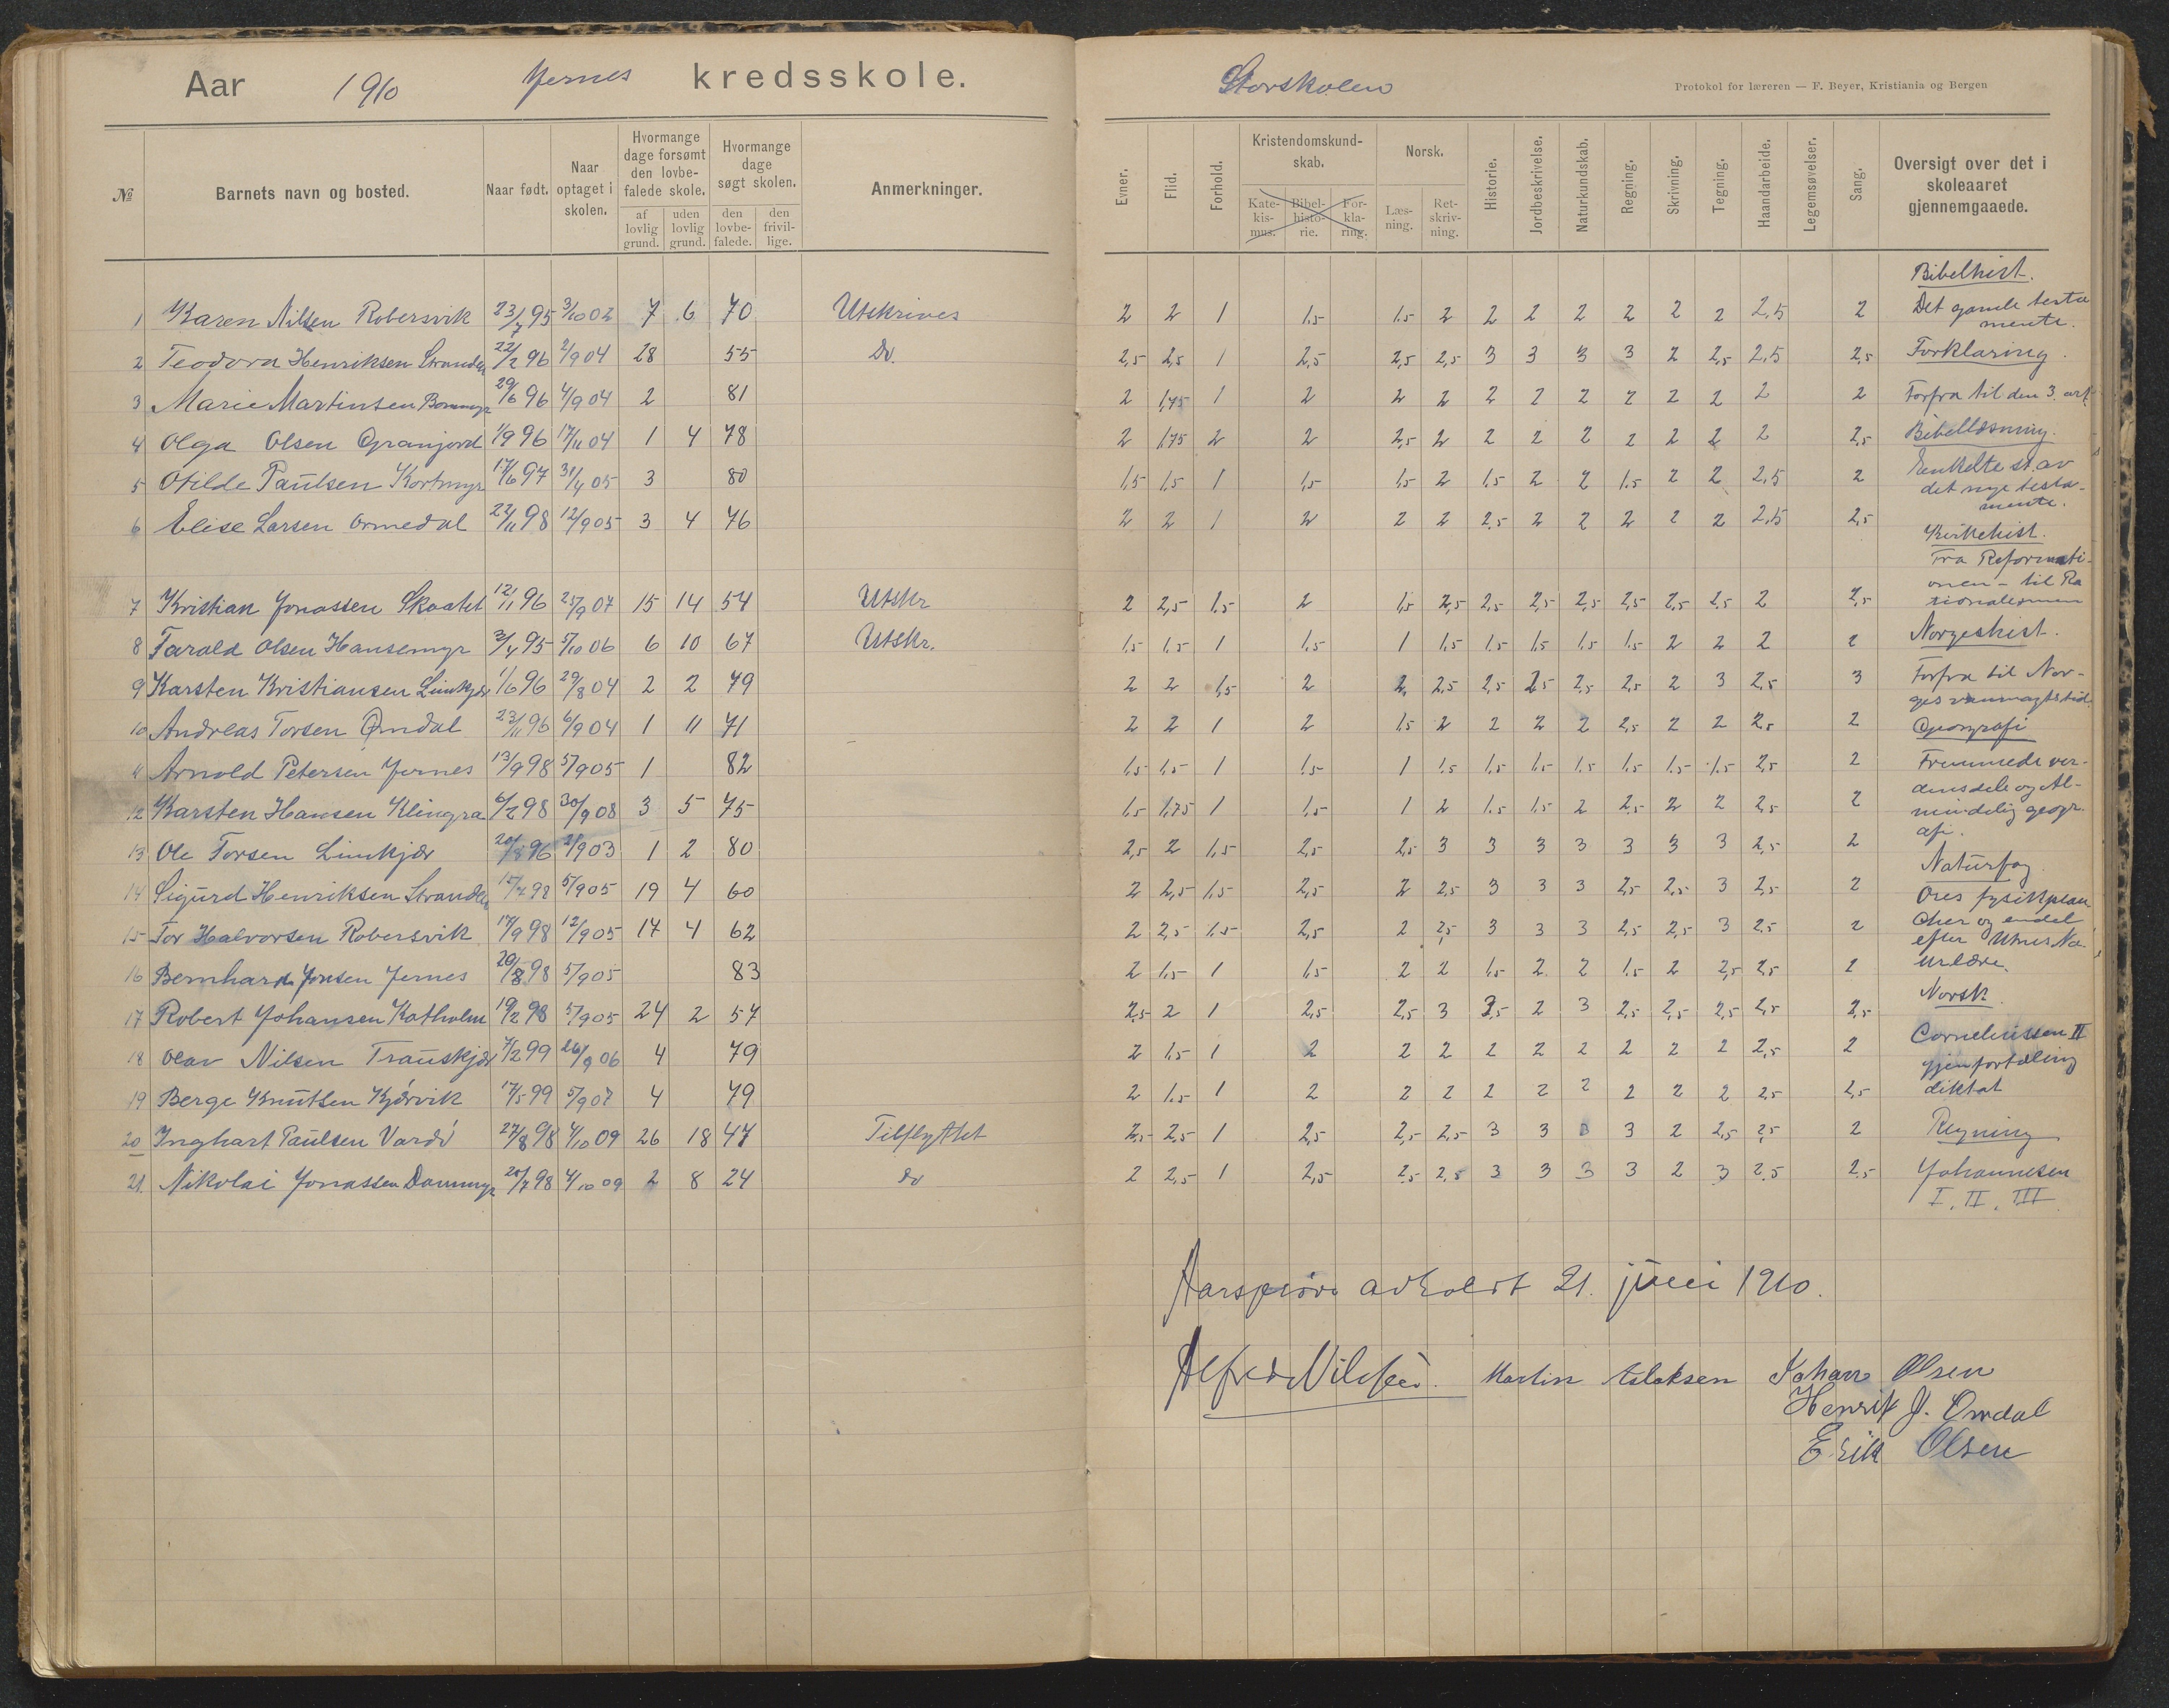 Aar 1910 Jernes kredsskole.
№ Barnets navn og bosted. Naar født. Naar optaget i skolen. Hvormange dage forsømt den lovbefalede skole. af lovlig grund. uden lovlig grund. Hvormange dage søgt skolen. den lovbefalede. den frivillige. Anmerkninger.
1 Karen Nilsen Robersvik 23/7 95 3/10 02 7 6 70 Utskrives
2 Teodora Henriksen 22/2 96 2/9 04 28 55 Do.
3 Marie Martinsen 29/6 96 4/9 04 2 81
4 Olga Olsen Granjord 1/9 96 17/11 04 1 4 78
5 Otilde Paulsen Kortmyr 17/6 97 31/4 05 3 80
6 Elise Larsen Ormedal 22/11 98 12/9 05 3 4 76
7 Kristian Jonassen Skaatet 12/11 96 25/9 07 15 14 54 Utskr
8 Tarald Olsen Hansemyr 3/4 95 5/10 06 6 10 67 Utskr.
9 Karsten Kristiansen Limkjær 1/6 96 29/8 04 2 2 79
10 Andreas Torsen Omdal 23/11 96 6/9 04 1 11 71
11 Arnold Petersen Jernes 13/9 98 5/9 05 1 82
12 Karsten Hansen Klingra 6/2 98 30/9 08 3 5 75
13 Ole Torsen Limkjær 20/8 96 2/9 03 1 2 80
14 Sigurd Henriksen 15/7 98 5/9 05 19 4 60
15 Tor Halvorsen Robersvik 17/9 98 12/9 05 17 4 62
16 Bernhard Jonsen Jernes 20/8 98 5/9 05 83
17 Robert Johansen Katholm 19/2 98 5/9 05 24 2 57
18 Olav Nilsen Trauskjær 7/2 99 26/9 06 4 79
19 Berge Knutsen Kjørvik 17/5 99 5/9 07 4 79
20 Inghart Paulsen Vardö 27/8 98 4/10 09 26 18 47 Tilflyttet
21. Nikolai Jonassen Dammyr 20/7 98 4/10 09 2 8 24 do
Storskolen
Protokol for læreren — F. Beyer, Kristiania og Bergen
Evner. Flid. Forhold. Kristendomskundskab. Katekismus. Bibelhistorie. Forklaring. Norsk. Læsning. Retskrivning. Historie. Jordbeskrivelse. Naturkundskab. Regning. Skrivning. Tegning. Haandarbeide. Legemsøvelser. Sang. Oversigt over det i skoleaaret gjennemgaaede.
2 2 1 1,5 1,5 2 2 2 2 2 2 2 2,5 2
2,5 2,5 1 2,5 2,5 2,5 3 3 3 3 2 2,5 2,5 2,5
2 1,75 1 2 2 2 2 2 2 2 2 2 2 2
2 1,75 2 2 2,5 2 2 2 2 2 2 2 2 2,5
1,5 1,5 1 1,5 1,5 2 1,5 2 2 1,5 2 2 2,5 2
2 2 1 2 2 2 2,5 2 2 2 2 2 2,5 2,5
2 2,5 1,5 2 1,5 2,5 2,5 2,5 2,5 2,5 2,5 2,5 2 2,5
1,5 1,5 1 1,5 1 1,5 1,5 1,5 1,5 1,5 2 2 2 2
2 2 1,5 2 2, 2,5 2,5 2,5 2,5 2,5 2 3 2,5 3
2 2 1 2 1,5 2 2 2 2 2,5 2 2 2,5 2
1,5 1,5 1 1,5 1 1,5 1,5 1,5 1,5 1,5 1,5 1,5 2,5 2
1,5 1,75 1 1,5 1 2 1,5 1,5 2 2,5 2 2 2,5 2
2,5 2 1,5 2,5 2,5 3 3 3 3 3 3 3 2,5 2
2 2,5 1,5 2,5 2 2,5 3 3 3 2,5 2,5 3 2,5 2
2 2,5 1,5 2,5 2 2,5 3 3 3 2,5 2,5 3 2,5 2
2 1,5 1 1,5 2 2 1,5 2 2 1,5 2 2,5 2,5 2
2,5 2 1 2,5 2,5 3 2,5 2 3 2,5 2,5 2,5 2,5 2,5
2 1,5 1 2 2 2 2 2 2 2 2 2 2,5 2
2 1,5 1 2 2 2 2 2 2 2 2 2 2,5 2,5
2,5 2,5 1 2,5 2,5 2,5 3 3 3 3 2 2,5 2,5 2
2 2,5 1 2,5 2,5 2,5 3 3 3 3 2 3 2,5 2,5
Bibelhist.
Det gamle testa
mente.
Forklaring.
Forfra til den 3. art.
Bibellæsning.
Enkelte st. av
det nye testa-
mente.
Kirkehist.
Fra Reformati-
onen - til Ra
tionalismen
Norgeshist.
Forfra til Nor-
ges vanmagtstid.
Geografi
Fremmede ver-
densdele og Al-
mindelig geogr-
afi.
Naturfag
Ores fysikplan
cher og endel
efter
urlære.
Norsk.
Corneliussen II
gjenfortæling
diktat
Regning
Johannesen
I, II, III.
Aarsprøve avholdt 21. juni 1910.
Alfred Nilsen. Martin Aslaksen Johan Olsen
Henrik J. Omdal
Erik Olsen